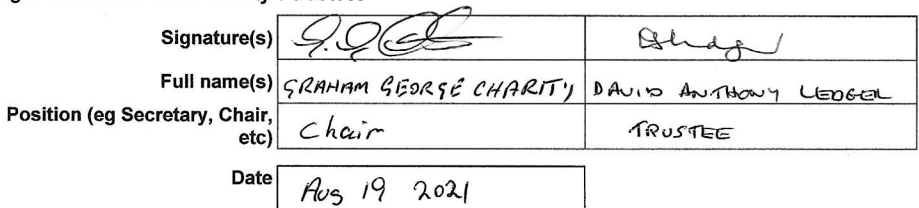 Signature(s)
Full name(s) GRAHAM GEORGE CHARITY DAVID ANTHONY LEDGER
Position (eg Secretary, Chair, etc) Chair TRUSTEE
Date Aug 19 2021